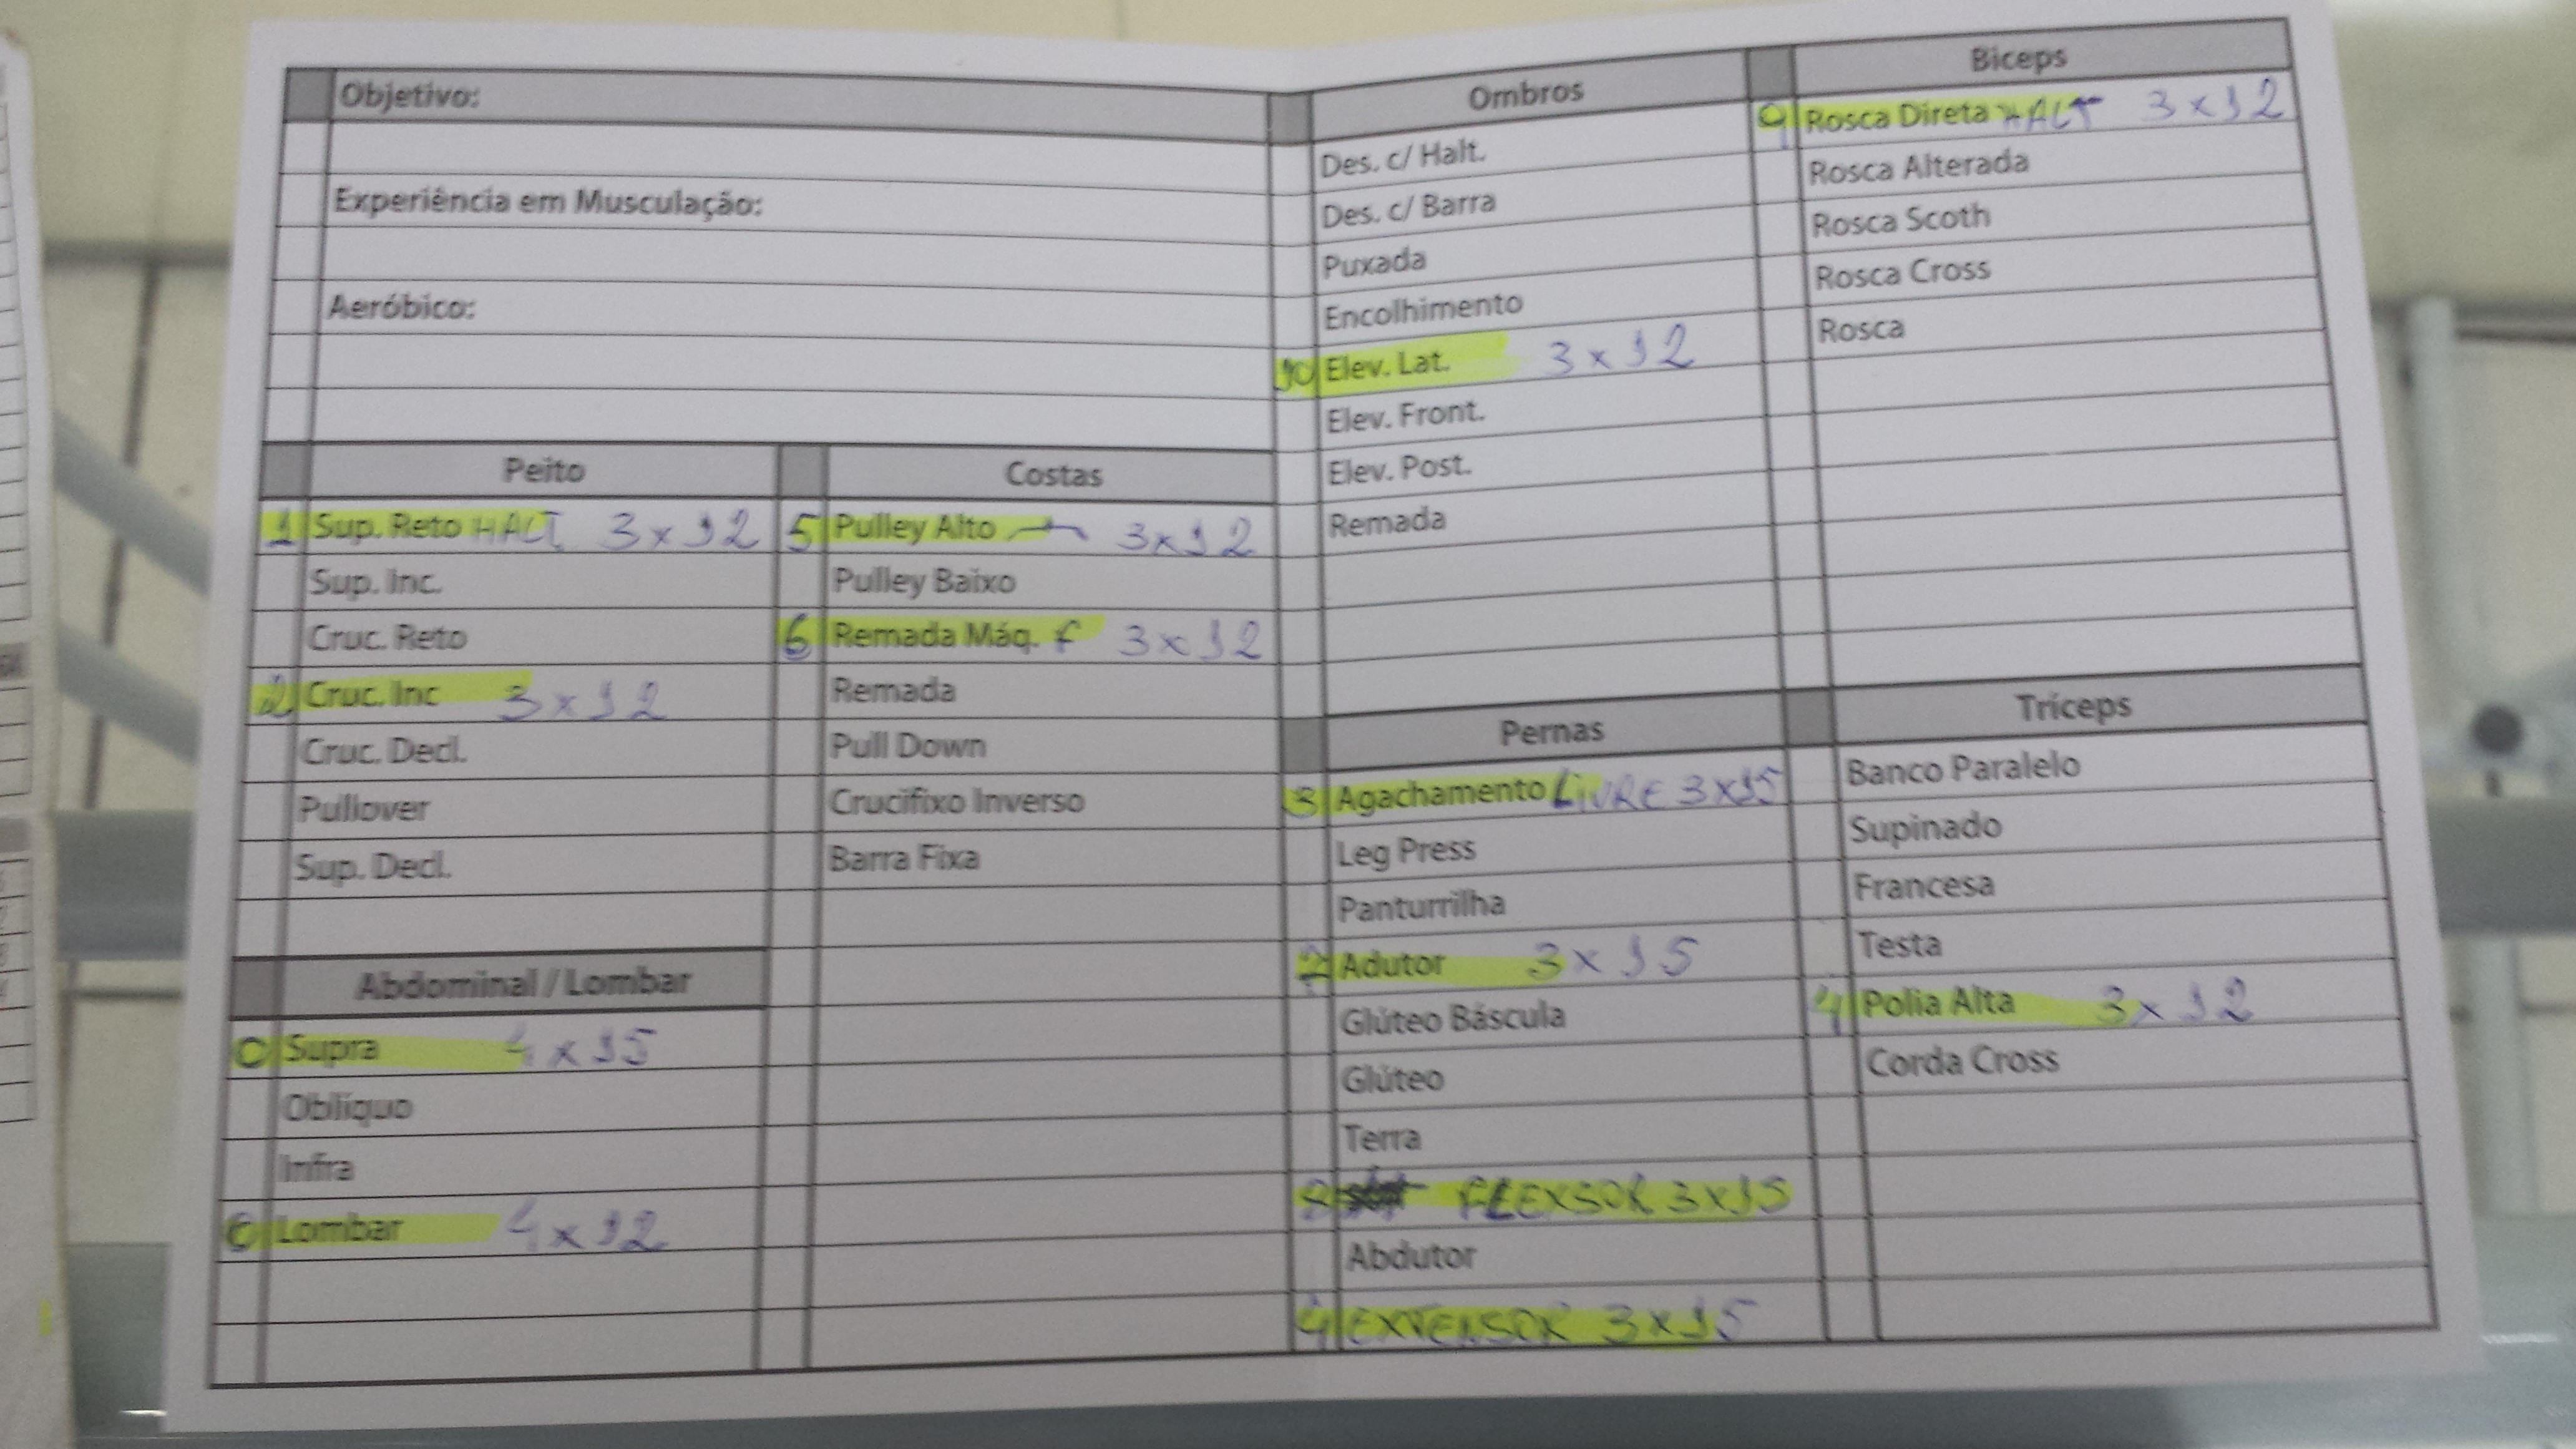 Objetivo:
Experiência em Musculação:
Aeróbico:
Peito
1 Sup. Reto HALT 3x12
Sup. Inc.
Cruc. Reto
2 Cruc. Inc 3x12
Cruc. Decl.
Pullover
Sup. Decl.
Abdominal / Lombar
0 Supra 4x15
Oblíquo
Infra
Lombar 4x12
Costas
5 Pulley Alto 3x12
Pulley Baixo
6 Remada Máq. F 3x12
Remada
Pull Down
Crucifixo Inverso
Barra Fixa
Ombros
Des. c/ Halt.
Des. c/ Barra
Puxada
Encolhimento
10 Elev. Lat. 3x12
Elev. Front.
Elev. Post.
Remada
Pernas
3 Agachamento LIVRE 3x15
Leg Press
Panturrilha
7 Adutor 3x15
Glúteo Báscula
Glúteo
Terra
8 FLEXSOR 3x15
Abdutor
4 EXTENSOR 3x15
Biceps
9 Rosca Direta HALT 3x12
Rosca Alterada
Rosca Scoth
Rosca Cross
Rosca
Tríceps
Banco Paralelo
Supinado
Francesa
Testa
4 Polia Alta 3x12
Corda Cross